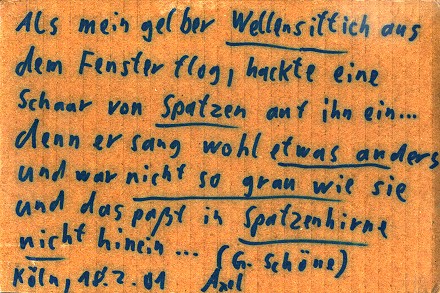 Als mein gelber Wellensittich aus
dem Fenster flog, hackte eine
Schaar von Spatzen auf ihn ein...
denn er sang wohl etwas anders
und war nicht so grau wie sie
und das paßt in Spatzenhirne
nicht hinein... (G. Schöne)
Köln, 18.2.01 Axel